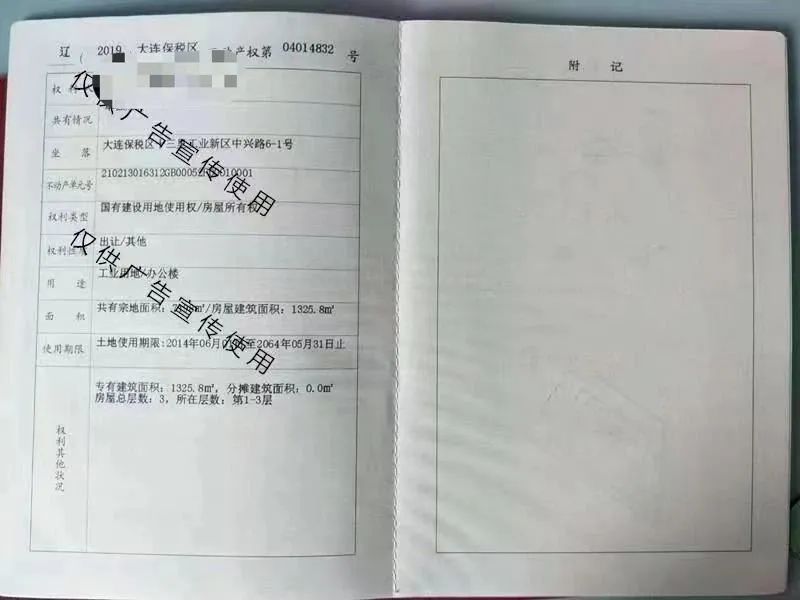 辽（2019 大连保税区 不动产权第 04014832 号
附 记
权利
共有情况
坐 落 大连保税区 三 工业新区中兴路6-1号
不动产单元号 210213016312GB0005 0010001
权利类型 国有建设用地使用权/房屋所有权
权利性 出让/其他
用 途 工业用地/办公楼
面 积 共有宗地面积： ㎡/房屋建筑面积：1325.8㎡
使用期限 土地使用期限:2014年06月0 至2064年05月31日止
权利其他状况
专有建筑面积：1325.8㎡，分摊建筑面积：0.0㎡
房屋总层数：3，所在层数：第1-3层
仅供广告宣传使用
仅供广告宣传使用